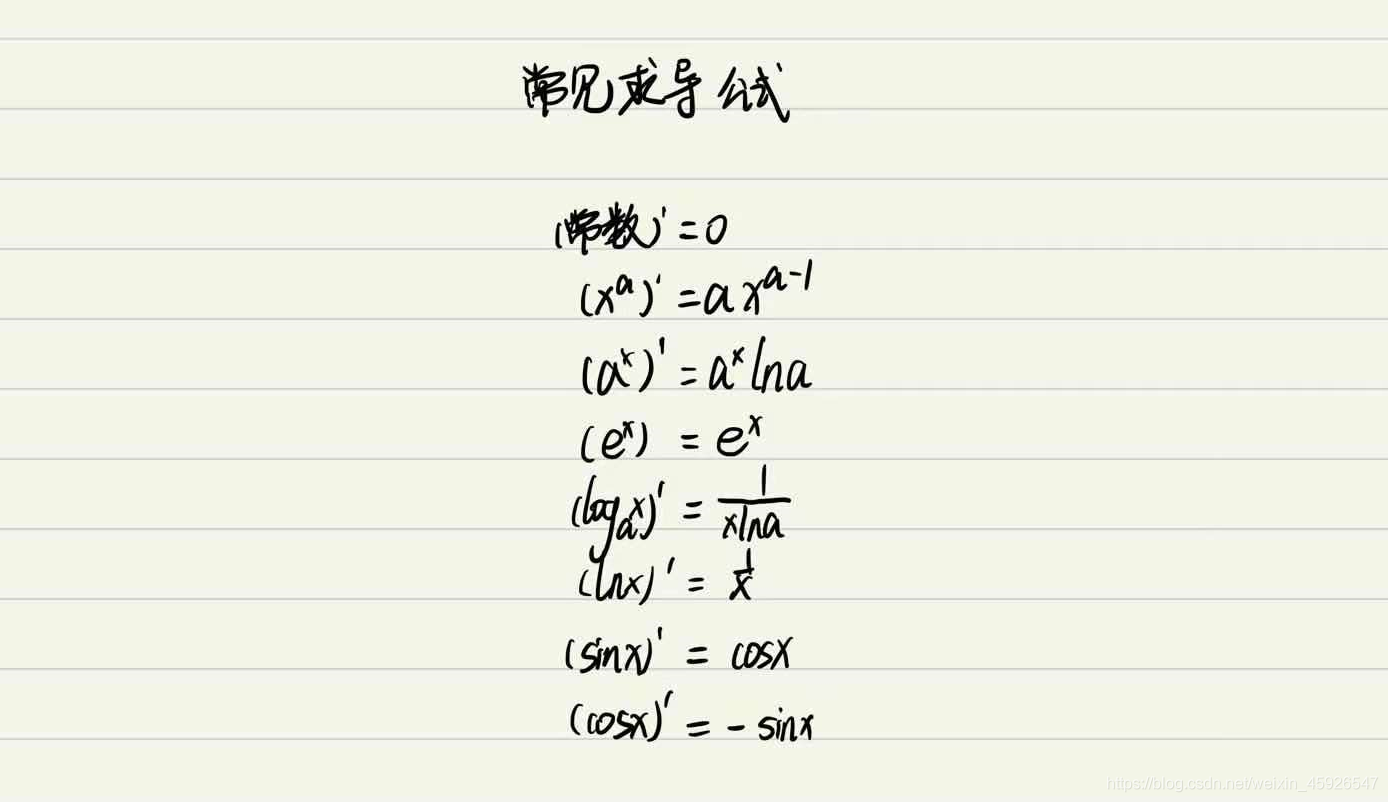 常见求导公式
(常数)'=0
(x^a)'=ax^{a-1}
(a^x)'=a^x lna
(e^x) =e^x
(log_a x)'=\frac{1}{xlna}
(lnx)'=\frac{1}{x}
(sinx)'=cosx
(cosx)'=-sinx
https://blog.csdn.net/weixin_45926547